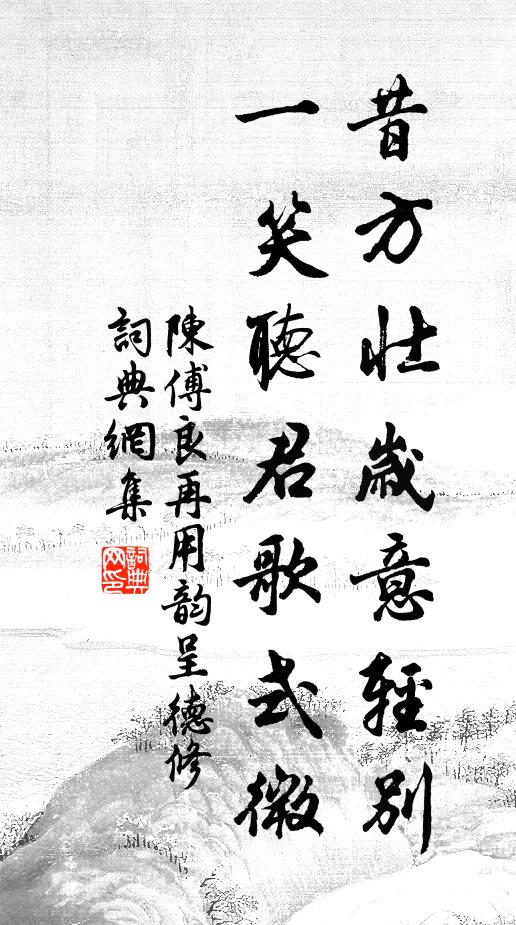 昔方壯歲意輕別
一笑聽君歌式微
陳傅良再用韵呈德修
詞典網集
詞典
网印